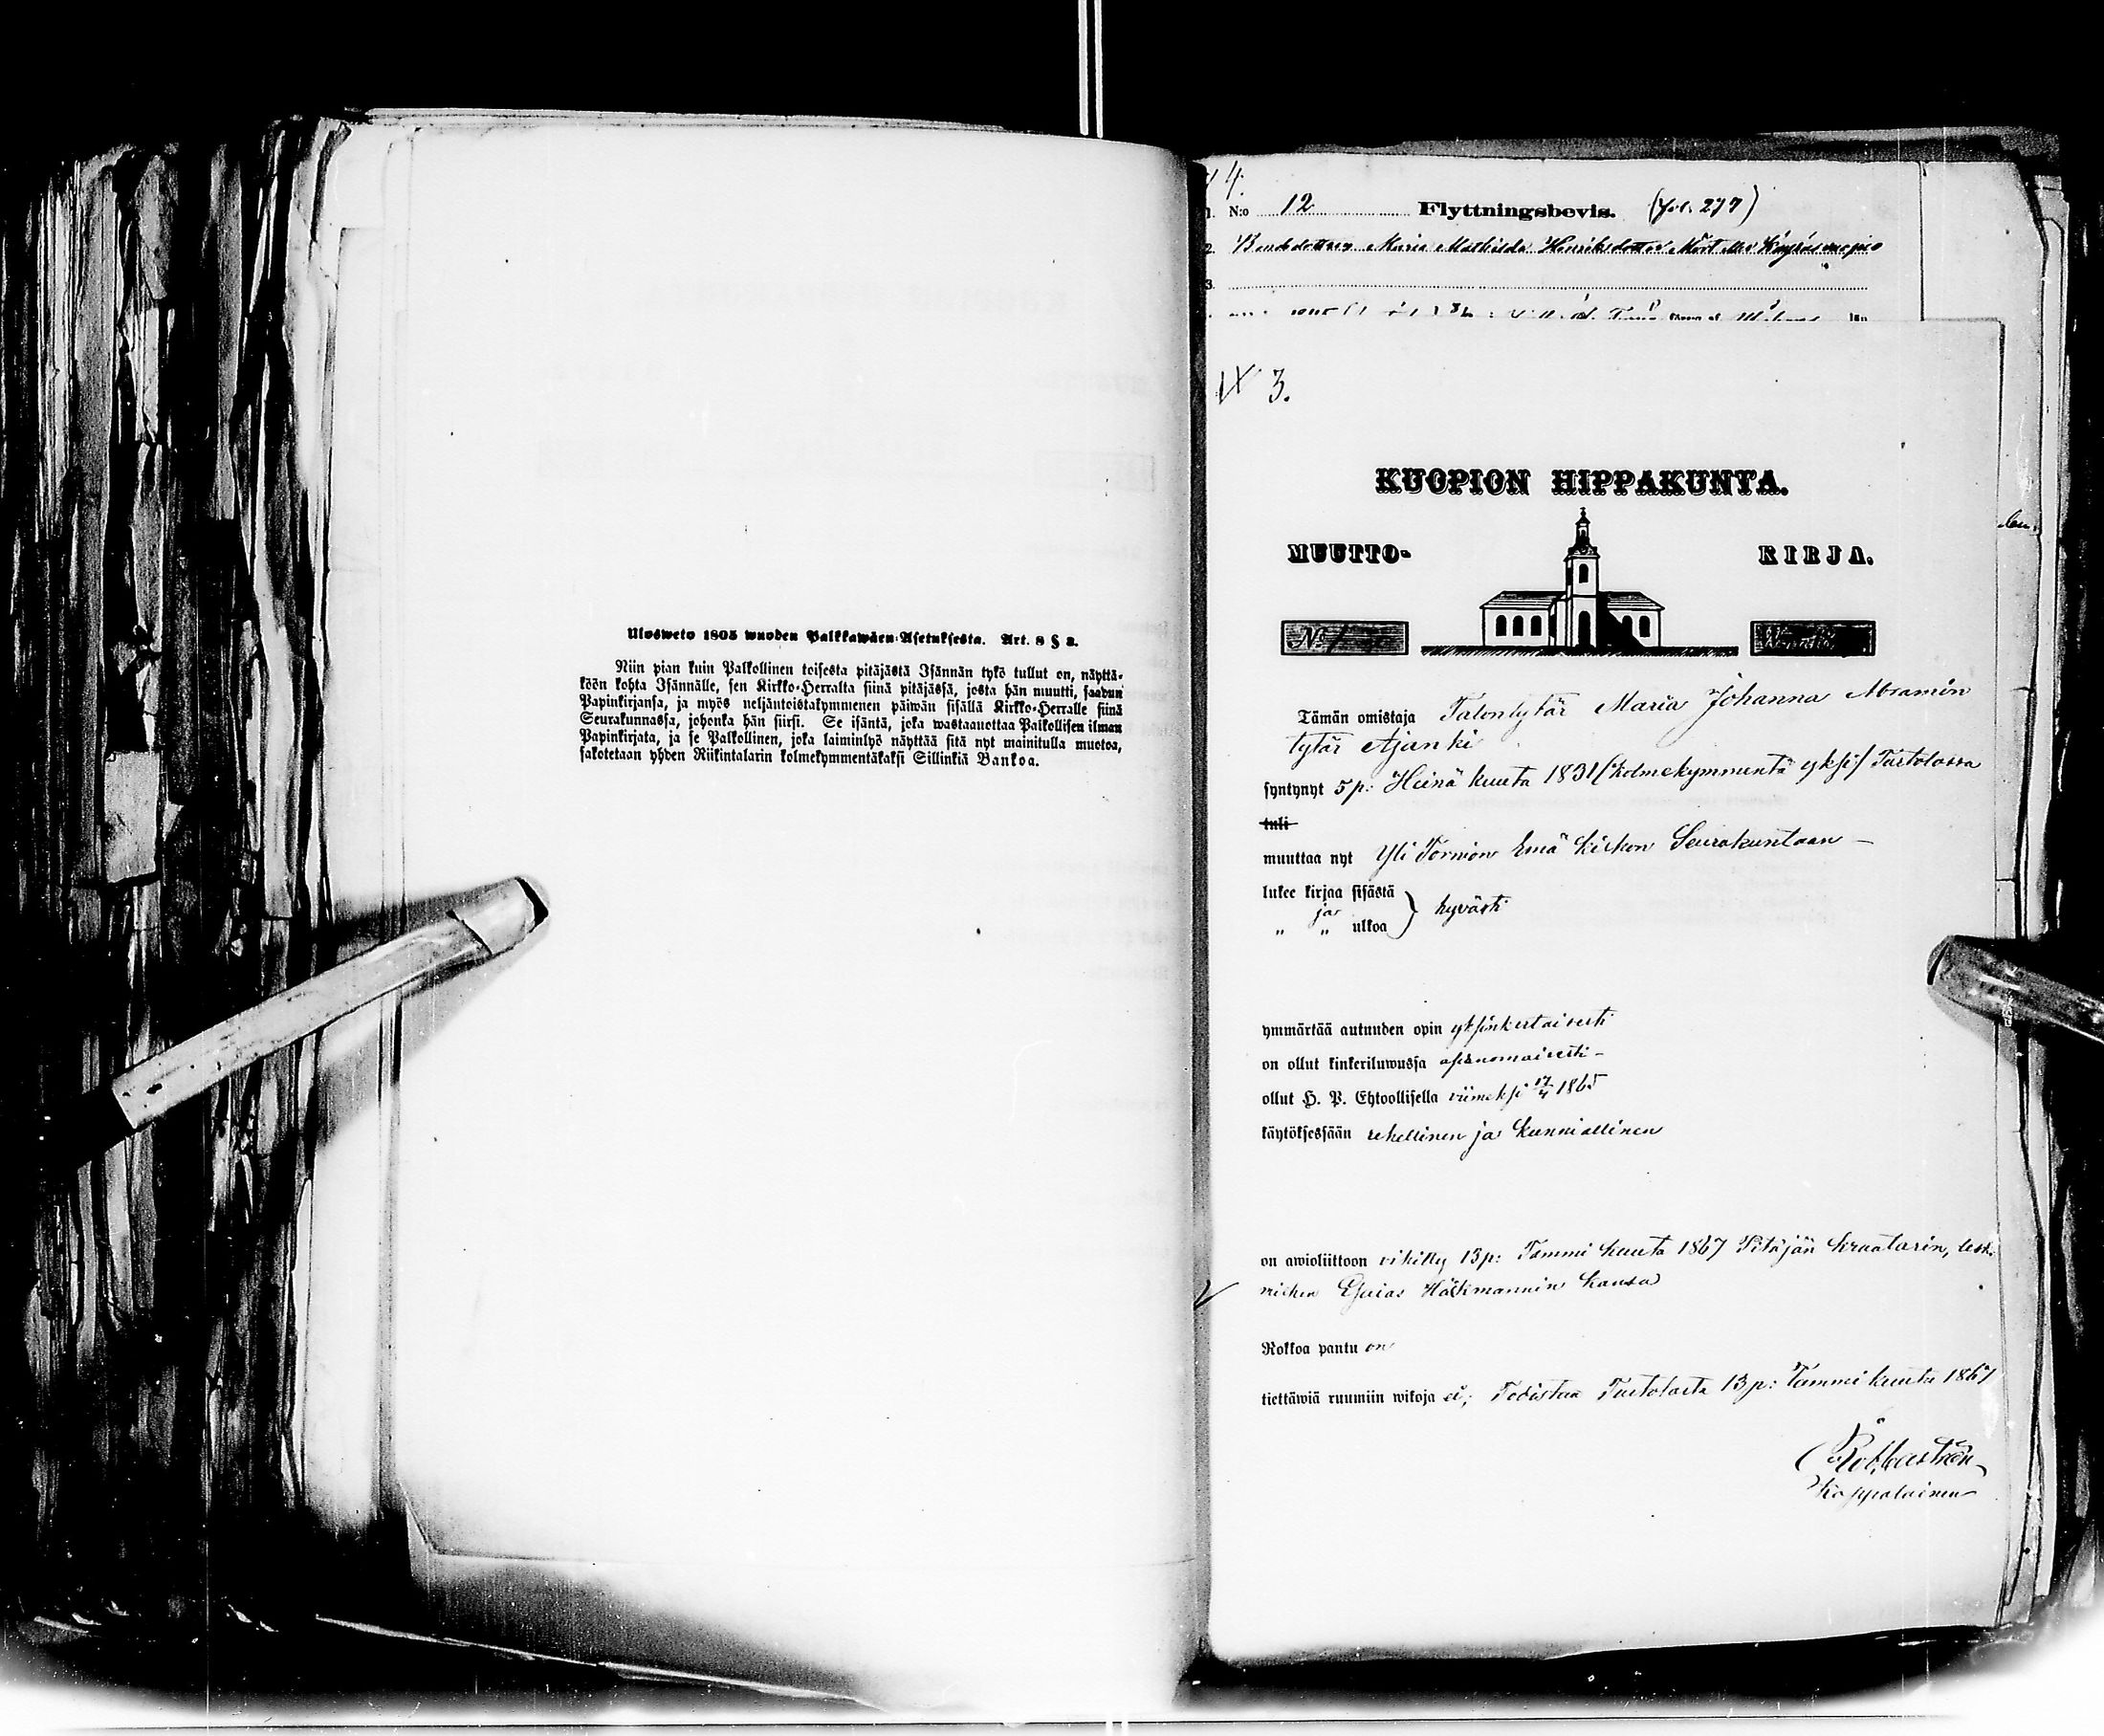 Ulosweto 1805 wuoden Palkkawäen-Asetuksesta. Art. 8 § 2.
Niin pian kuin Palkollinen toisesta pitäjästä Isännän tykö tullut on, näyttä-
köön kohta Isännälle, sen Kirkko-Herralta siinä pitäjässä, josta hän muutti, saadun
Papinkirjansa, ja myös neljäntoistakymmenen päiwän sisällä Kirkko-Herralle siinä
Seurakunnassa, johonka hän siirsi. Se isäntä, joka wastaanottaa Palkollisen ilman
Papinkirjata, ja se Palkollinen, joka laiminlyö näyttää sitä nyt mainitulla muotoa,
sakotetaan yhden Riikintalarin kolmekymmentäkaksi Sillinkiä Bankoa.
4.
1. N:o 12 Flyttningsbevis. (fol. 277)
2. Bondedottren Maria Mathilda Henriksdotter
3.
3.
KUOPION HIPPAKUNTA.
MUUTTO- KIRJA.
N:o
Tämän omistaja Talontytär Maria Johanna Abramin
tytär Ajanki
syntynyt 5 p: Heinä kuuta 1831 (kolmekymmentä yksi) Turtolassa
tuli
muuttaa nyt Yli Tornion Emä kirkon Seurakuntaan –
lukee kirjaa sisästä
ja } hyvästi
„ „ ulkoa
ymmärtää autuuden opin yksinkertaisesti
on ollut kinkeriluwussa ahkeraisesti –
ollut H. P. Ehtoollisella viimeksi 17/4 1865
käytöksessään rehellinen ja kunniallinen
on awioliittoon vihitty 13 p: Tammi kuuta 1867 Pitäjän kraatarin, lesk.
miehen Esaias Häkmannin kansa
Rokkoa pantu on
tiettäwiä ruumiin wikoja ei; Todistaa Turtolasta 13 p: Tammi kuuta 1867
Kappalainen